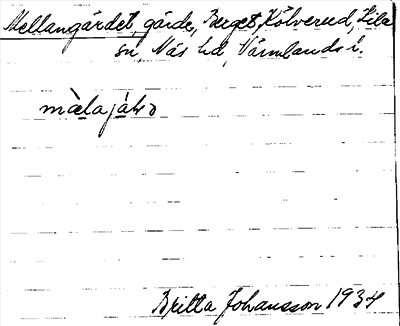 Mellangärdet, gärde, Berget, Kölverud, Silla
sn, Näs hd, Värmlands l.
Britta Johansson 1934